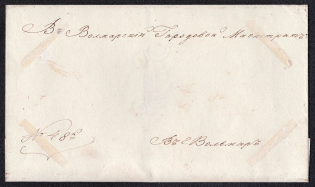 Въ Волмарскій Городовой Магистратъ
№ 482
Въ Вольмаръ